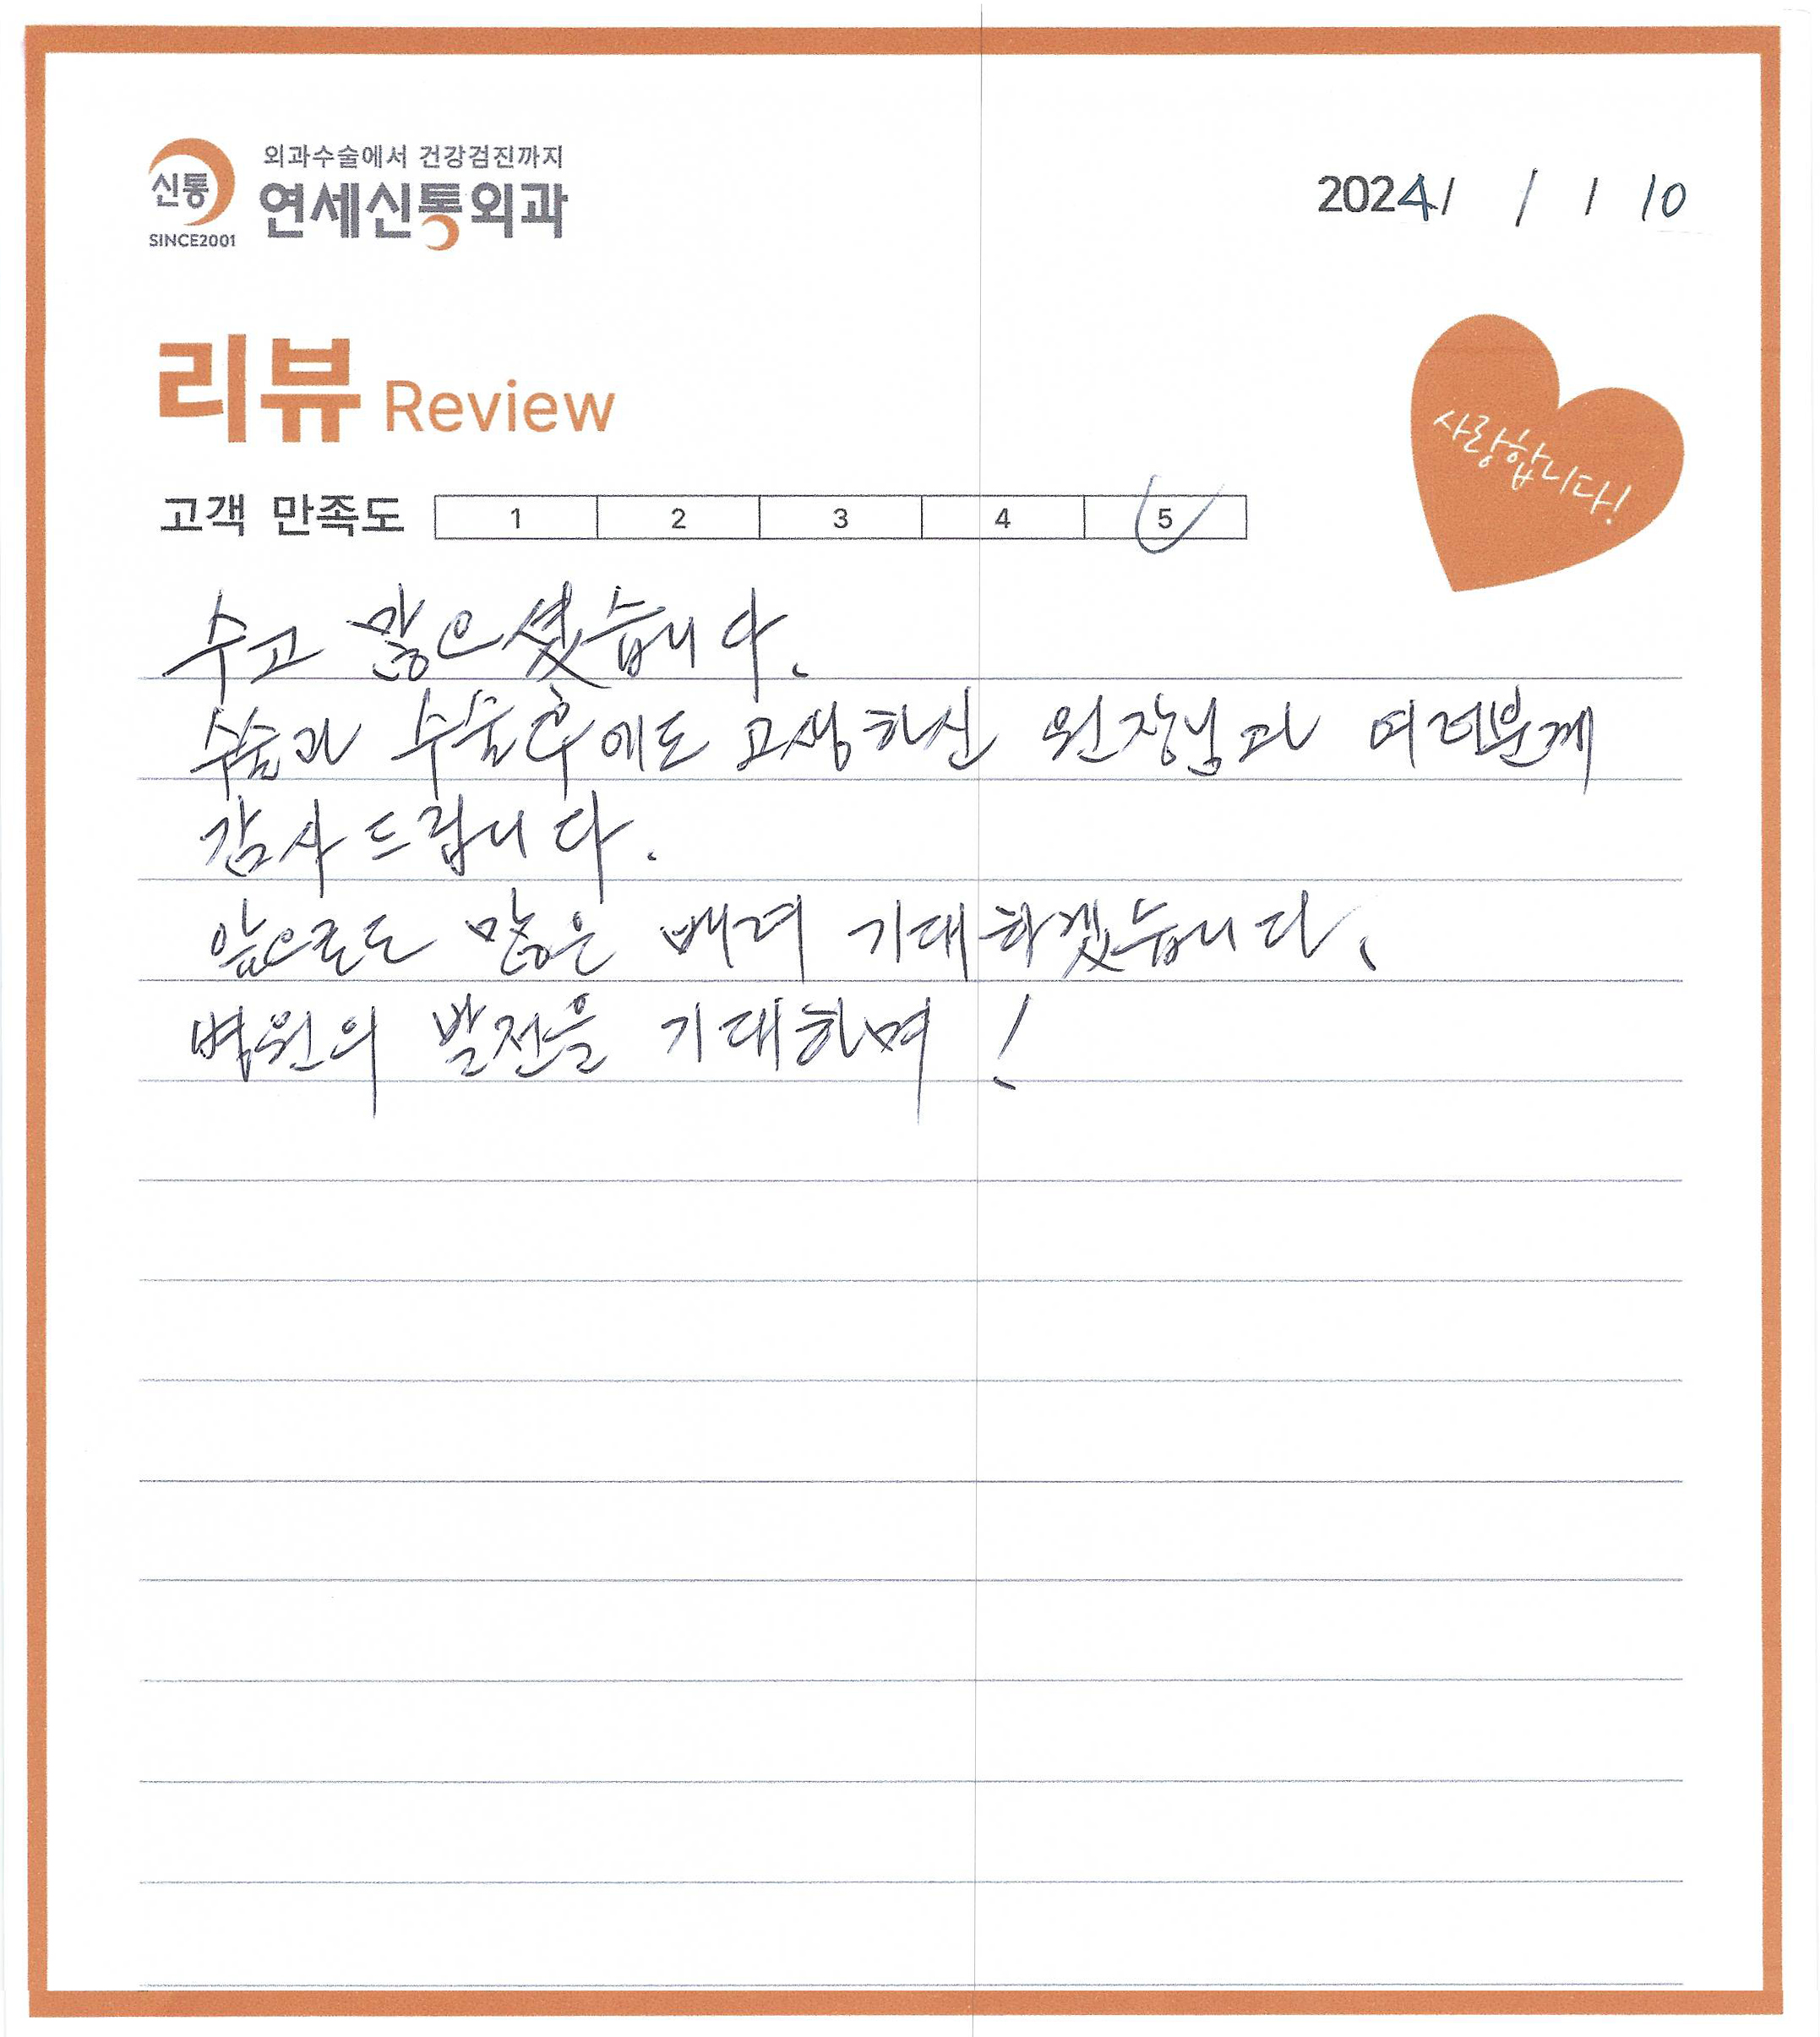 외과수술에서 건강검진까지
신통 연세신통외과
SINCE2001
2024/ / / 10
리뷰 Review
사랑합니다!
고객 만족도 1 2 3 4 5
수고 많으셨습니다.
수술과 수술후에도 고생하신 원장님과 여러분께
감사드립니다.
앞으로도 많은 배려 기대하겠습니다.
병원의 발전을 기대하며!